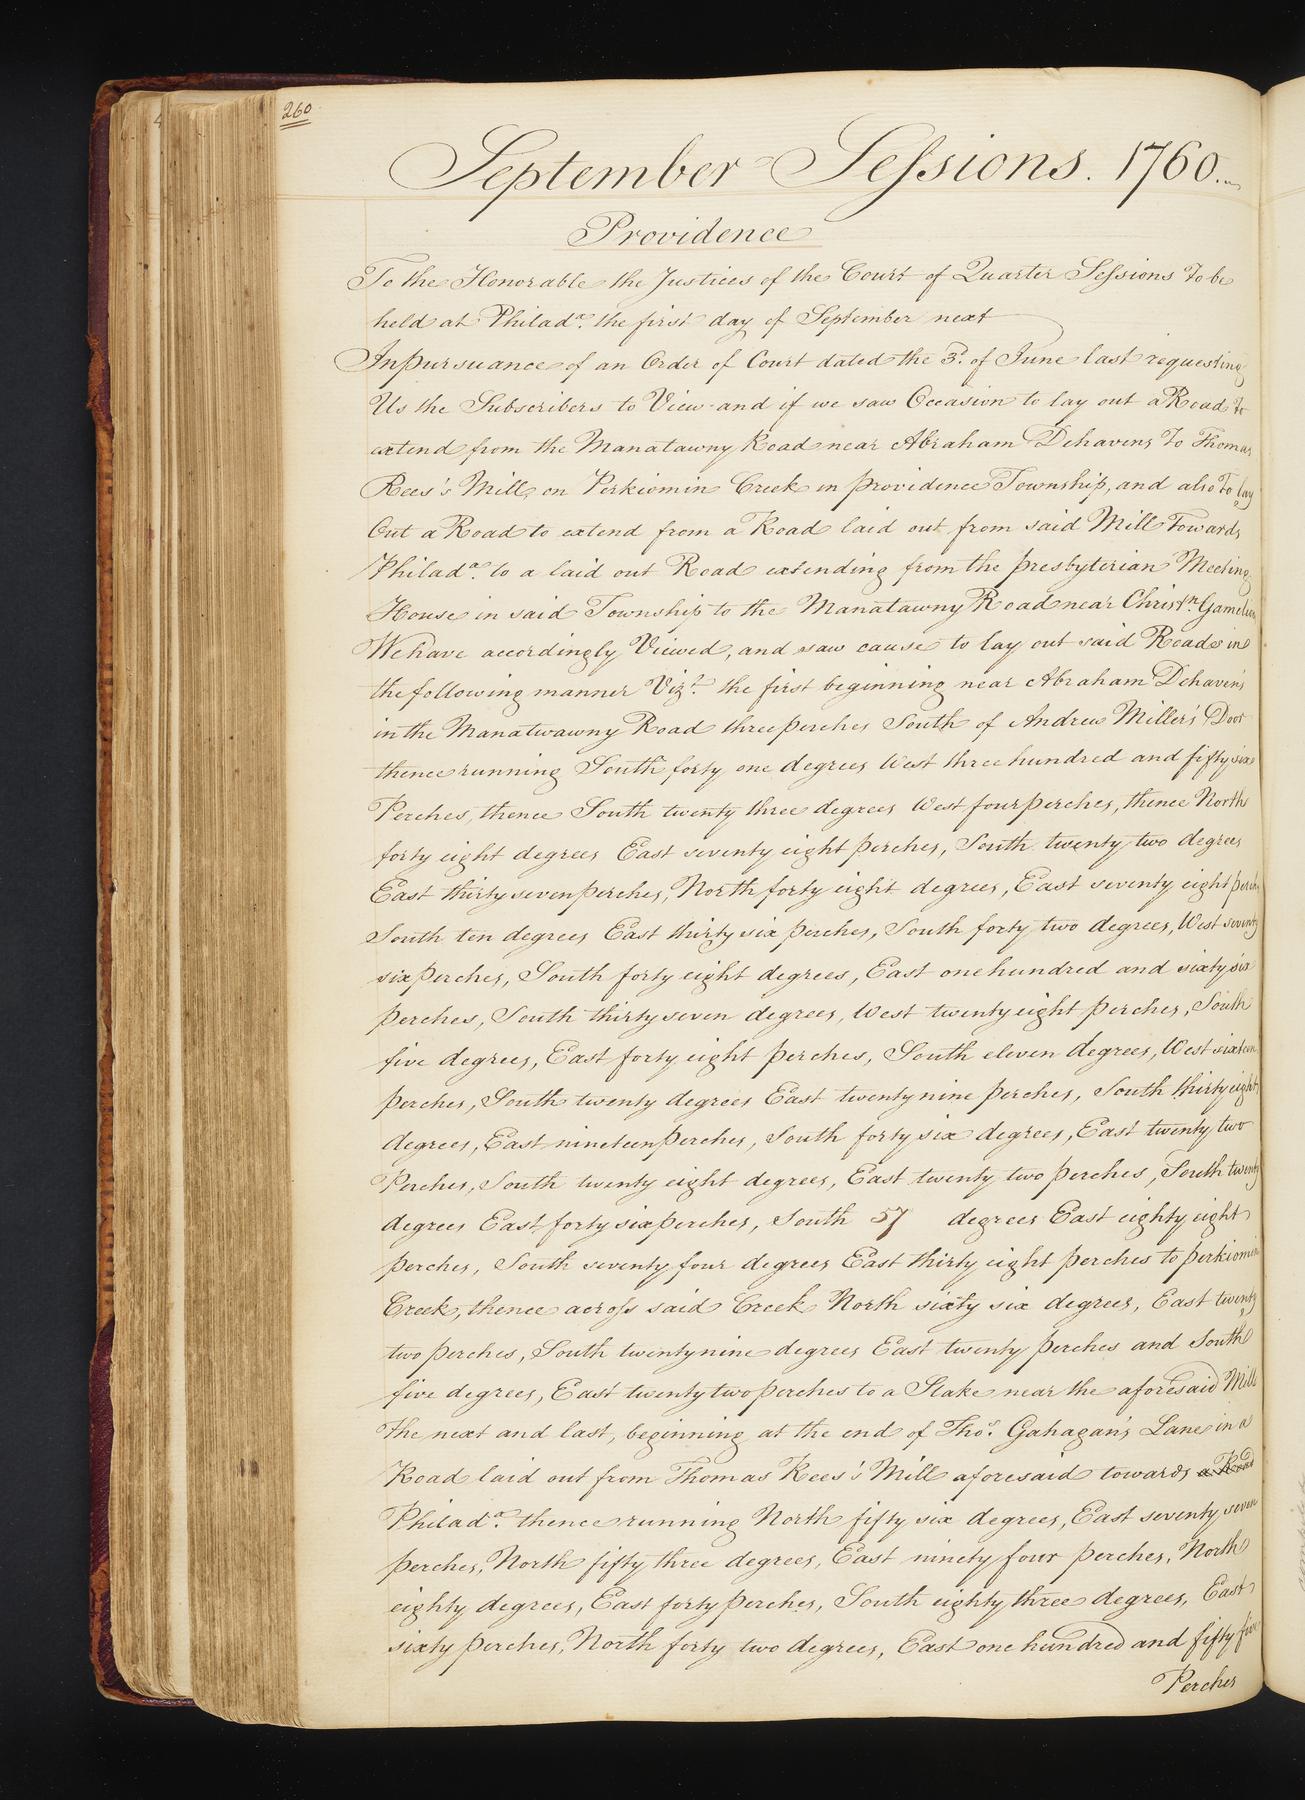 260
September Sessions. 1760.
Providence
To the Honorable the Justices of the Court of Quarter Sessions To be
held at Philada. the first day of September next
In pursuance of an Order of Court dated the 3d. of June last requesting
Us the Subscribers to View and if we saw Occasion to lay out a Road to
extend from the Manatawny Road near Abraham Dehavens To Thomas
Rees's Mill on Perkiomin Creek in providence Township, and also To lay
Out a Road to extend from a Road laid out from said Mill Towards
Philada. to a laid out Road extending from the presbyterian Meeting
House in said Township to the Manatawny Road near Christn. Gamelin
We have accordingly Viewed, and saw cause to lay out said Roads in
the following manner Vizt. the first beginning near Abraham Dehaven's
in the Manatwawny Road three perches South of Andrew Miller's Door
thence running South forty one degrees West three hundred and fifty six
Perches, thence South twenty three degrees West four perches, thence North
forty eight degrees East seventy eight perches, South twenty two degrees
East thirty seven perches, North forty eight degrees, East seventy eight perches
South ten degrees East thirty six perches, South forty two degrees, West seventy
six perches, South forty eight degrees, East one hundred and sixty six
perches, South thirty seven degrees, West twenty eight perches, South
five degrees, East forty eight perches, South eleven degrees, West sixteen
perches, South twenty degrees East twenty nine perches, South thirty eight
degrees, East nineteen perches, South forty six degrees, East twenty two
Perches, South twenty eight degrees, East twenty two perches, South twenty
degrees East forty six perches, South 57 degrees East eighty eight
perches, South seventy four degrees East thirty eight perches to perkiomin
Creek, thence across said Creek North sixty six degrees, East twenty
two perches, South twenty nine degrees East twenty perches and South
five degrees, East twenty two perches to a Stake near the aforesaid Mill
The next and last, beginning at the end of Thos. Gahagan's Lane in a
Road laid out from Thomas Rees's Mill aforesaid towards a Road
Philada. thence running North fifty six degrees, East seventy seven
perches, North fifty three degrees, East ninety four perches, North
eighty degrees, East forty perches, South eighty three degrees, East
sixty perches, North forty two degrees, East one hundred and fifty five
Perches